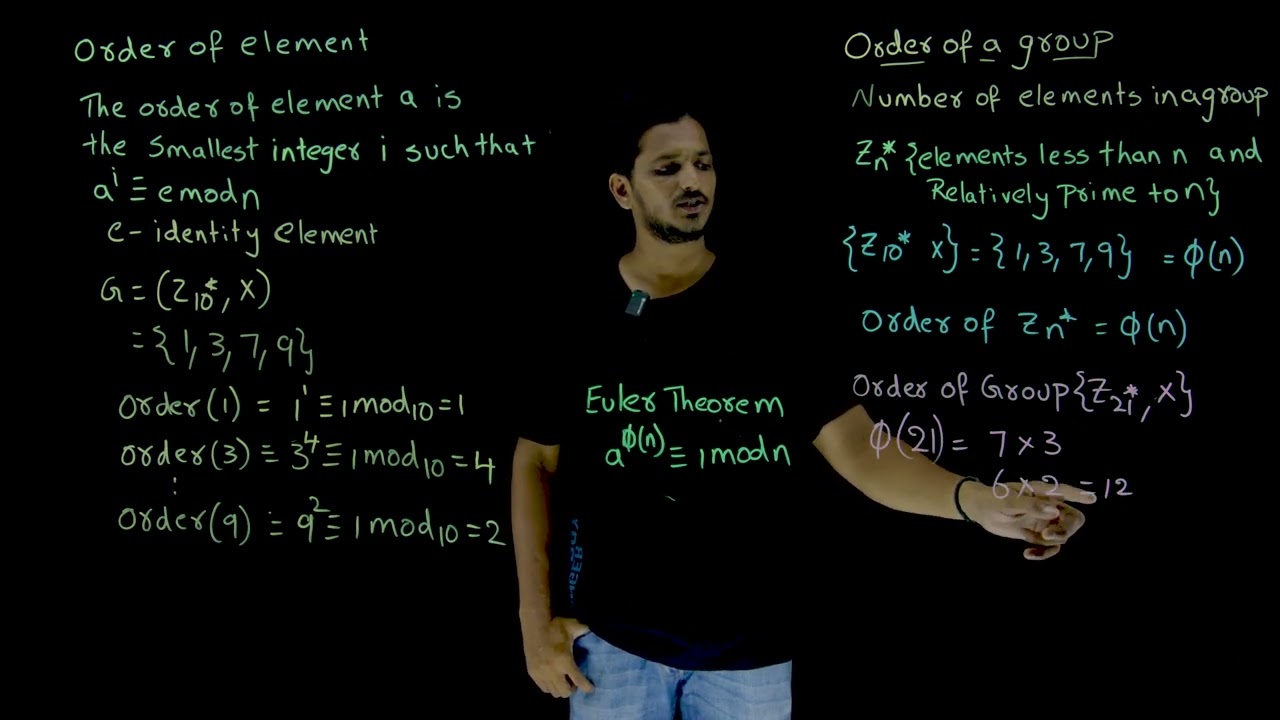 Order of element
The order of element a is
the smallest integer i such that
aⁱ ≡ e mod n
e - identity element
G = (Z₁₀*, x)
= {1, 3, 7, 9}
order(1) = 1¹ ≡ 1 mod₁₀ = 1
order(3) = 3⁴ ≡ 1 mod₁₀ = 4
⋮
order(9) = 9² ≡ 1 mod₁₀ = 2
Euler Theorem
a^ϕ(n) ≡ 1 mod n
Order of a group
Number of elements in a group
Zn* {elements less than n and
Relatively prime to n}
{Z₁₀* x} = {1, 3, 7, 9} = ϕ(n)
Order of Zn* = ϕ(n)
Order of Group {Z₂₁*, x}
ϕ(21) = 7 x 3
6 x 2 = 12